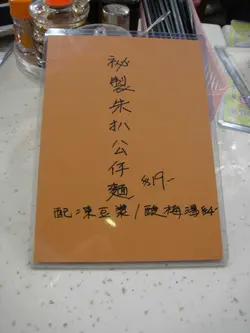 祕製朱扒公仔麵 $19-
配:凍豆漿/酸梅湯 $4-